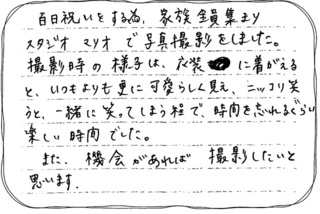 百日祝いをする為、家族全員集まり
スタジオ マリオ で写真撮影をしました。
撮影時の様子は、衣装 に着がえる
と、いつもよりも更に可愛らしく見え、ニッコリ笑
うと、一緒に笑ってしまう程で、時間を忘れるぐらい
楽しい時間でした。
また、機会があれば 撮影したいと
思います。